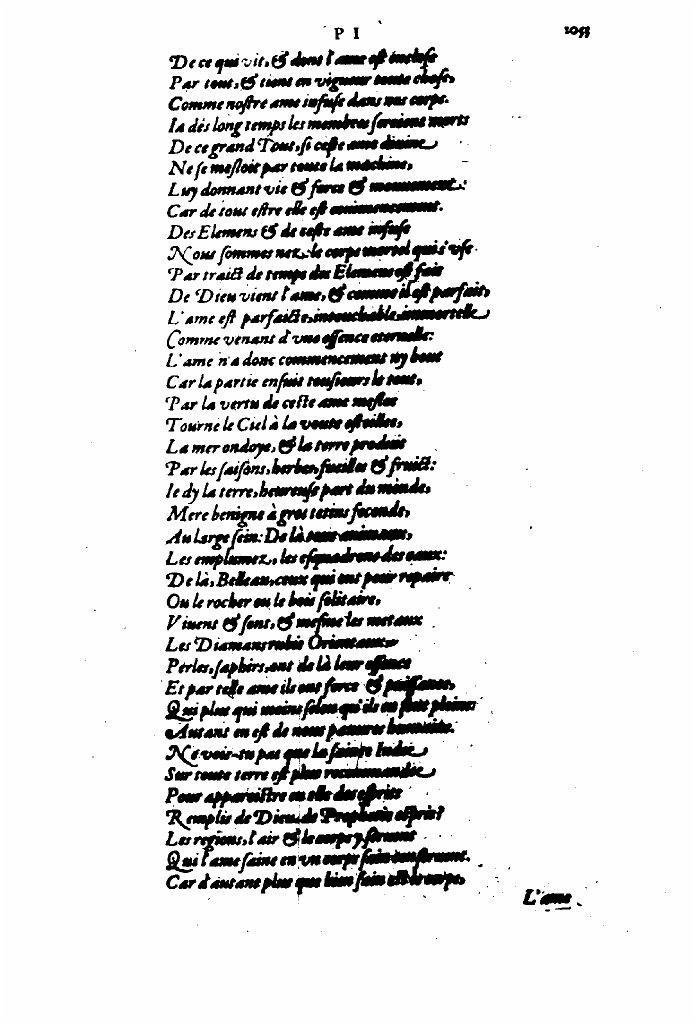 P I 1055
De ce qui vit, & dont l'ame est encluse
Par tout, & tient en vigueur toute chose,
Comme nostre ame infuse dans nos corps.
Ia dés long temps les membres seroient morts
De ce grand Tout, si ceste ame diuine
Ne se mesloit par toute la machine,
Luy donnant vie & force & mouuement:
Car de tout estre elle est commencement.
Des Elemens & de ceste ame infuse
Nous sommes nez: le corps mortel qui s'vse
Par traict de temps des Elemens est fait
De Dieu vient l'ame, & comme il est parfait,
L'ame est parfaicte, intouchable, immortelle
Comme venant d'vne essence eternelle:
L'ame n'a donc commencement ny bout
Car la partie ensuit tousiours le tout,
Par la vertu de ceste ame meslee
Tourne le Ciel à la voute estoillee,
La mer ondoye, & la terre produit
Par les saisons, herbes, fueilles & fruict:
Ie dy la terre, heureuse part du monde,
Mere benigne à gros tetins feconde,
Au large sein: De là tous animaux,
Les emplumez, les esquadrons des eaux:
De là, Belleau, ceux qui ont pour repaire
Ou le rocher ou le bois solitaire,
Viuent & sont, & mesme les metaux
Les Diamans rubis Orientaux
Perles, saphirs, ont de là leur essence
Et par telle ame ils ont force & puissance,
Qui plus qui moins selon qu'ils en sont pleins
Autant en est de nous pauures humains.
Ne vois-tu pas que la sainte Iudée
Sur toute terre est plus recommandée
Pour apparoistre en elle des esprits
Remplis de Dieu, de Prophetie espris?
Les regions, l'air & le corps y seruent
Qui l'ame saine en vn corps sain conseruent.
Car d'autant plus que bien sain est le corps,
L'ame